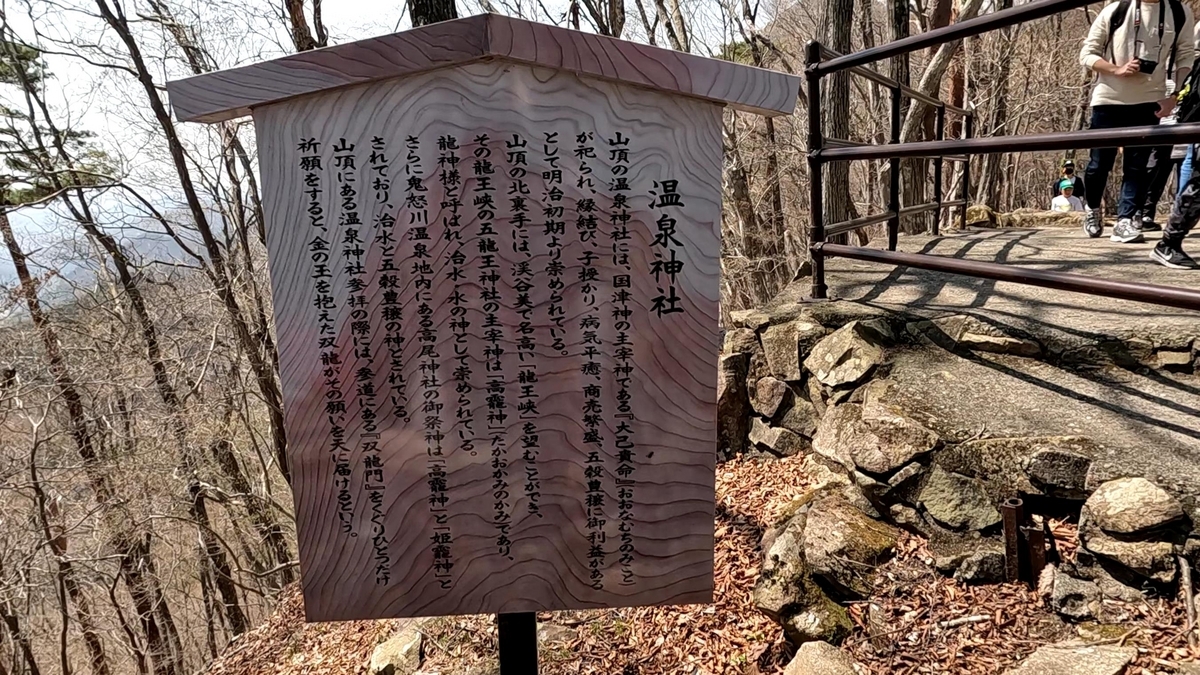 温泉神社
山頂の温泉神社には、国津神の主宰神である『大己貴命』おおなむちのみこと
が祀られ、縁結び、子授かり、病気平癒、商売繁盛、五穀豊穣に御利益がある
として明治初期より崇められている。
山頂の北裏手には、渓谷美で名高い「龍王峡」を望むことができ、
その龍王峡の五龍王神社の主宰神は「高龗神」たかおかみのかみであり、
龍神様と呼ばれ、治水・水の神として崇められている。
さらに鬼怒川温泉地内にある高尾神社の御祭神は「高龗神」と「姫龗神」と
されており、治水と五穀豊穣の神とされている。
山頂にある温泉神社参拝の際には、参道にある『双龍門』をくぐりひとつだけ
祈願をすると、金の玉を抱えた双龍がその願いを天に届けるという。